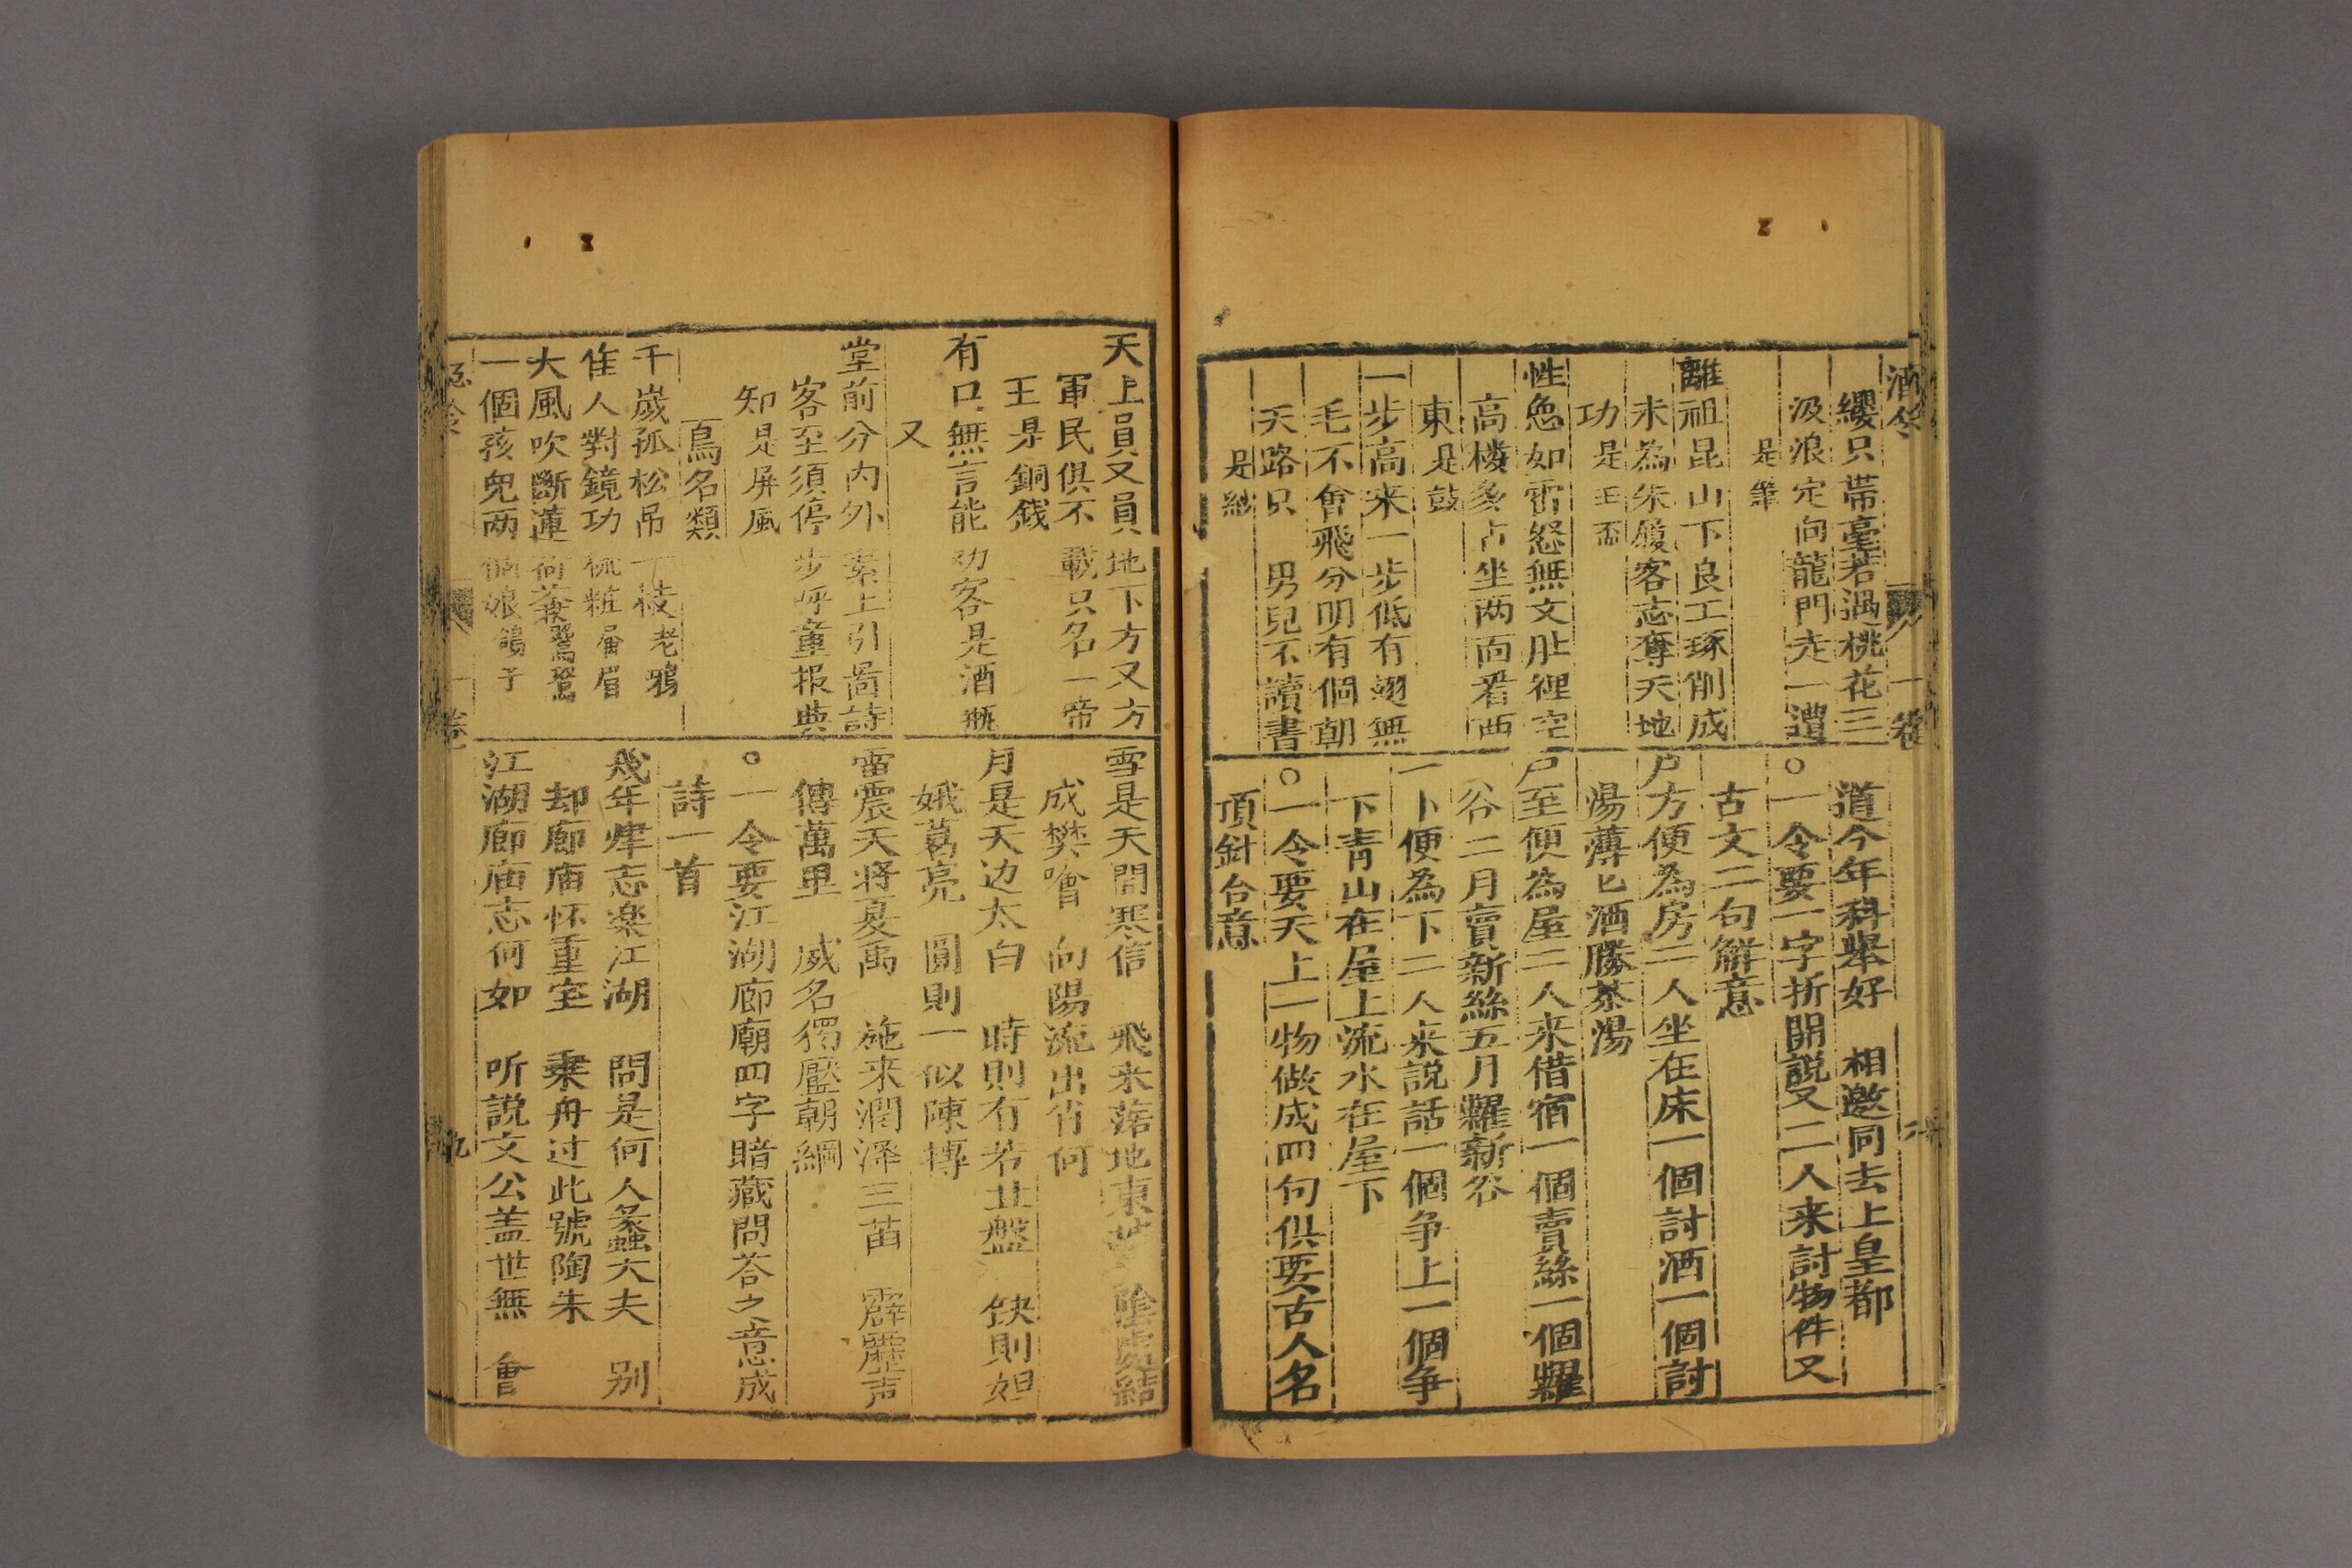 酒令
一卷
纓只帶毫若遇桃花三
汲浪定向龍門走一遭
是筆
離祖昆山下良工琢削成
未為朱履客志奪天地
功是玉盃
性急如雷怒無文肚裡空
高樓多占坐两面看西
東是鼓
一步高來一步低有翅無
毛不會飛分明有個朝
天路只 男兒不讀書
是
道今年科舉好 相邀同去上皇都
○一令要一字折開說又二人来討物件又
古文二句觧意
户方便為房二人坐在床一個討酒一個討
湯薄匕酒勝茶湯
户至便為屋二人来借宿一個賣絲一個糶
谷二月賣新絲五月糶新谷
一卜便為下二人来說話一個争上一個争
下青山在屋上流水在屋下
○一令要天上一物做成四句俱要古人名
頂針台意
天上員又員地下方又方
軍民俱不載只名一帝
王是銅錢
有口無言能劝客是酒瓶
又
堂前分内外素上引啚詩
客至須停步呼童报典
知是屏風
鳥名類
千歲孤松吊一枝老鴉
隹人對鏡功梳粧畫眉
大風吹斷蓮荷葉鴛鴦
一個孩児两個娘鴿子
雪是天間寒信 飛来落地東 陰處結
成樊噲 向陽流出肖何
月是天边太白 時則有若丑盤 缺則妲
娥葛亮 圓則一似陳摶
雷震天將夏禹 施来潤澤三苗 霹靂声
傳萬里 威名獨壓朝綱
○一令要江湖廊廟四字暗藏問荅之意成
詩一首
幾年肂志楽江湖 問是何人蠡大夫 别
却廊庙怀重宝 乗舟过此號陶朱
江湖廊庙志何如 听説文公盖世無 會
卷
九